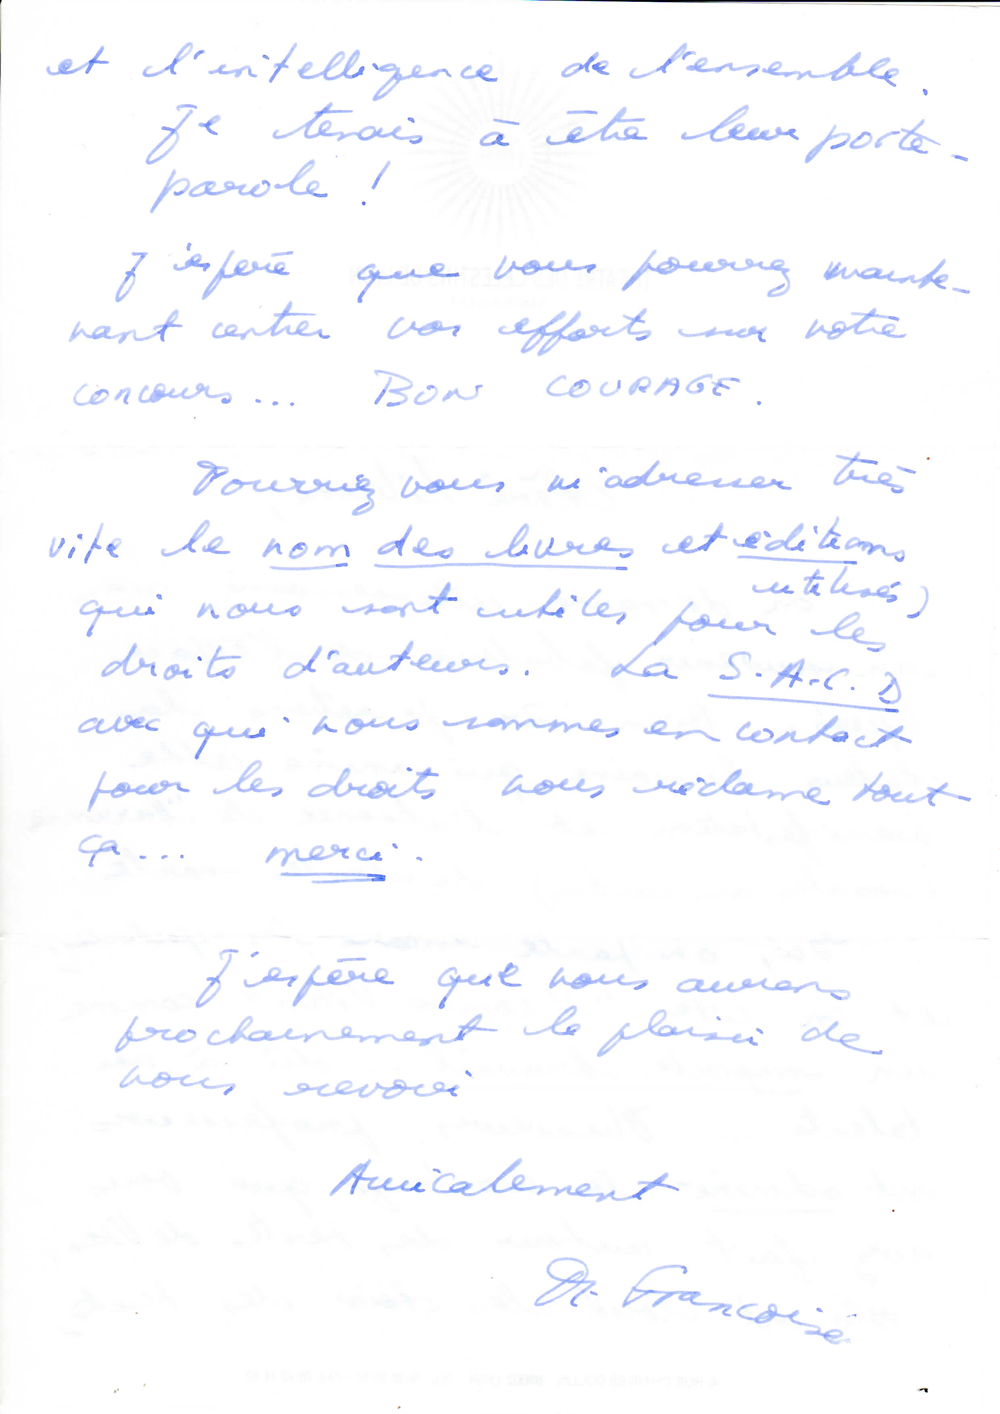 et l'intelligence de l'ensemble.
Je tenais à être leur porte-
parole !
J'espère que vous pourrez mainte-
nant centrer vos efforts sur votre
concours... BON COURAGE.
Pourriez vous m'adresser très
vite le nom des livres et éditions
utilisés)
qui nous sont utiles pour les
droits d'auteurs. La S.A.C.D
avec qui nous sommes en contact
pour les droits nous réclame tout
ça... merci.
J'espère que nous aurons
prochainement le plaisir de
vous revoir
Amicalement
M. Françoise